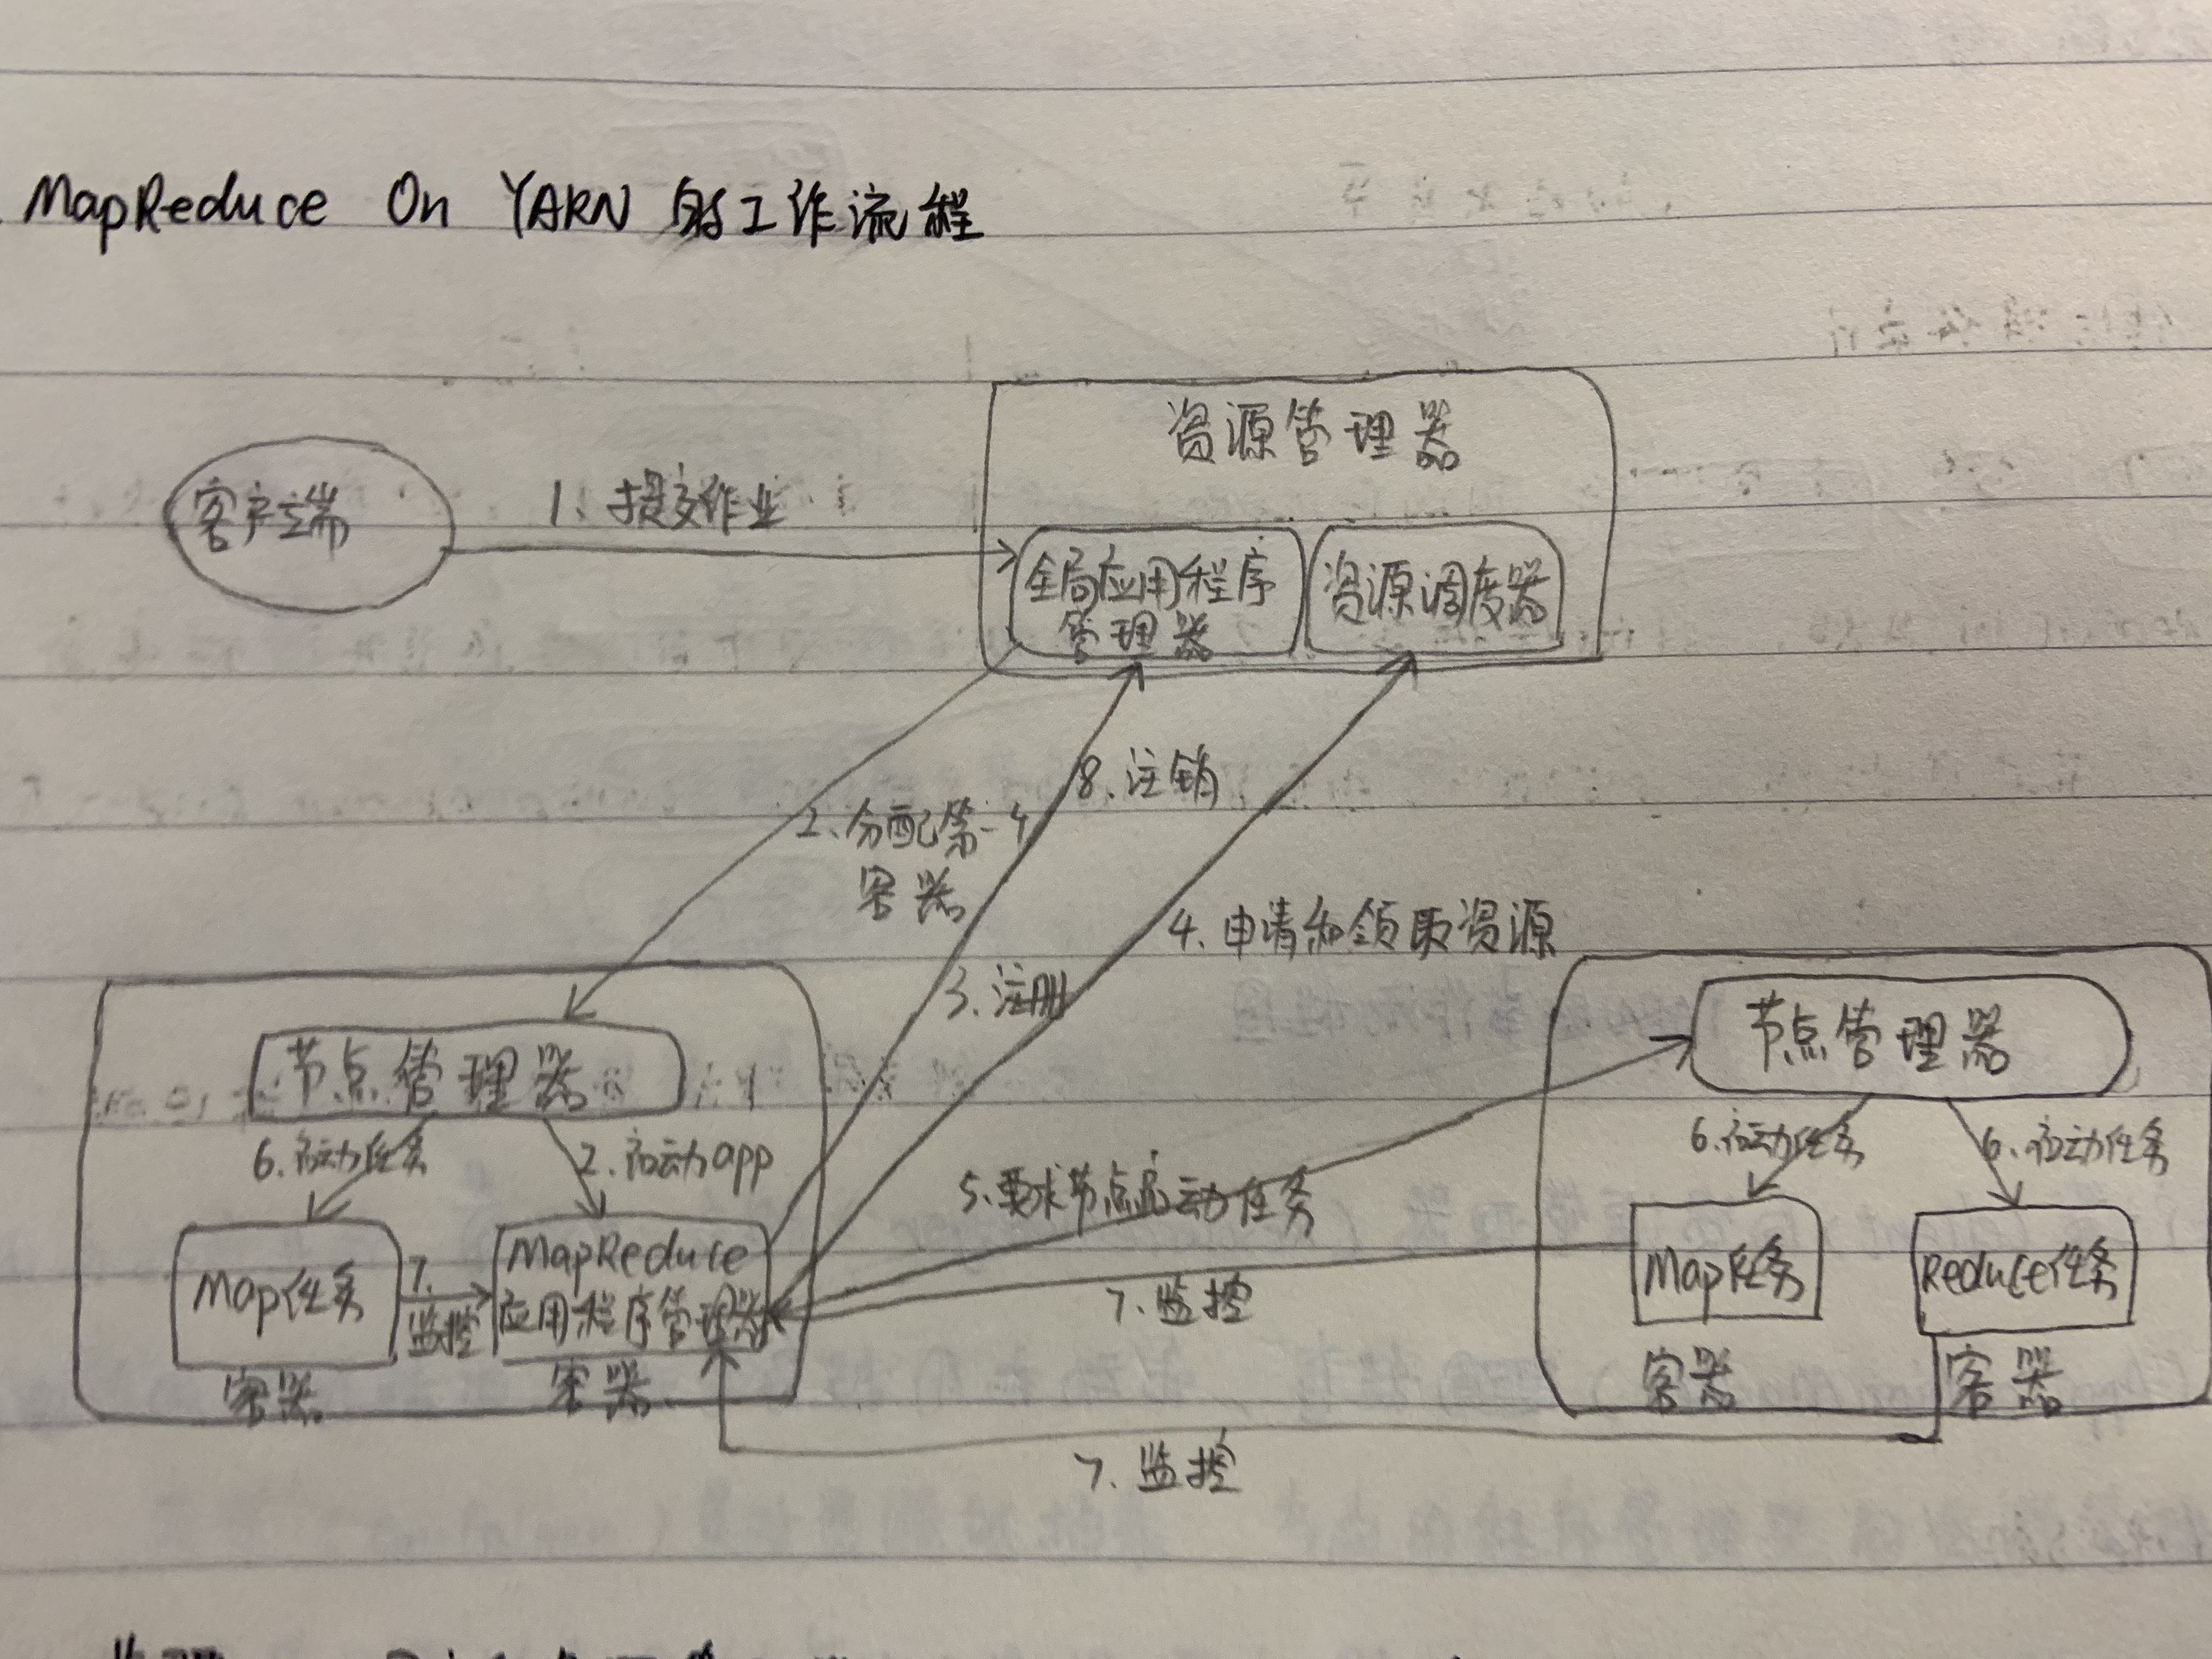 MapReduce On YARN 的工作流程
资源管理器
客户端
1、提交作业
全局应用程序
管理器
资源调度器
8.注销
2.分配第一个
容器
4.申请和领取资源
3.注册
节点管理器
节点管理器
6.启动任务
2.启动app
6.启动任务
6.启动任务
5.要求节点启动任务
Map任务
7.
监控
MapReduce
应用程序管理器
7.监控
Map任务
Reduce任务
容器
容器
容器
容器
7.监控